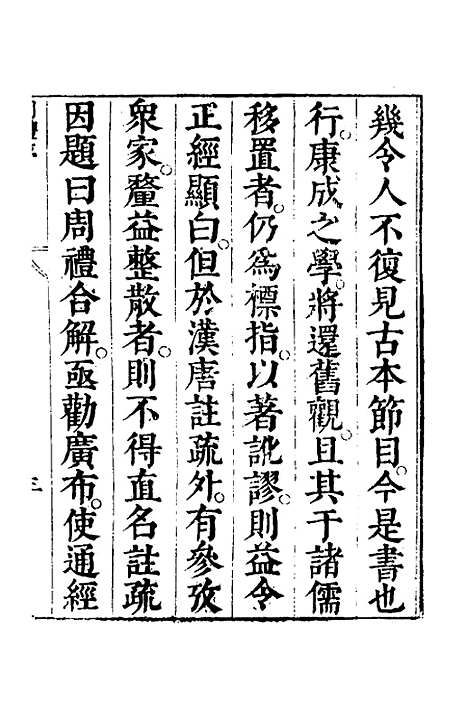 幾令人不復見古本節目。今是書也
行。康成之學。將還舊觀。且其于諸儒
移置者。仍爲標指。以著訛謬。則益令
正經顯白。但於漢唐註疏外。有參攷
衆家。釐益整散者。則不得直名註疏
因題曰周禮合解。亟勸廣布。使通經
三